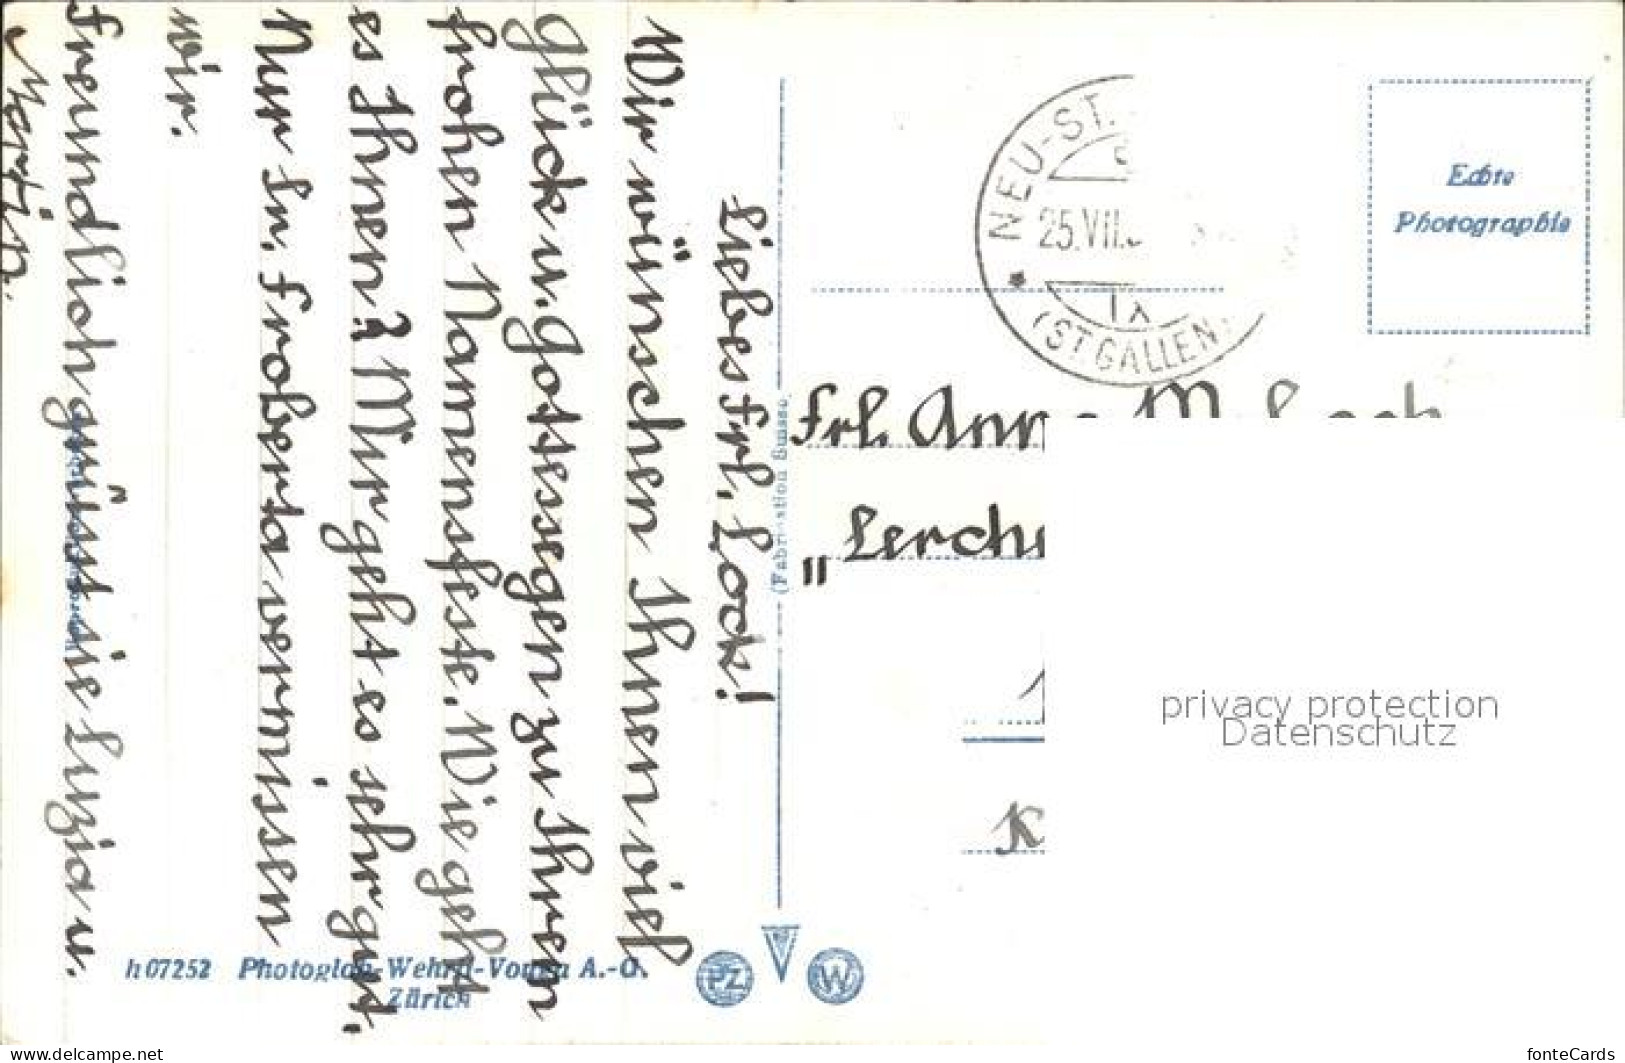 Liebes Frl. Lock!
Wir wünschen Ihnen viel
Glück u. Gottessegen zu Ihrem
frohen Namensfeste. Wie geht
es Ihnen? Mir geht es sehr gut.
Nur Sr. Froberta vermissen
wir.
Freundlich grüsst sie Luzia u.
Martin.
(Fabrication Suisse)
NEU-ST.
25.VII.
IX
(ST. GALLEN)
Echte
Photographie
Frl. Anna
„Lerch
K
privacy protection
Datenschutz
h 07252 Photoglob-Wehrli-Vouga A.-G.
Zürich
PZ
W
www.delcampe.net
fonteCards